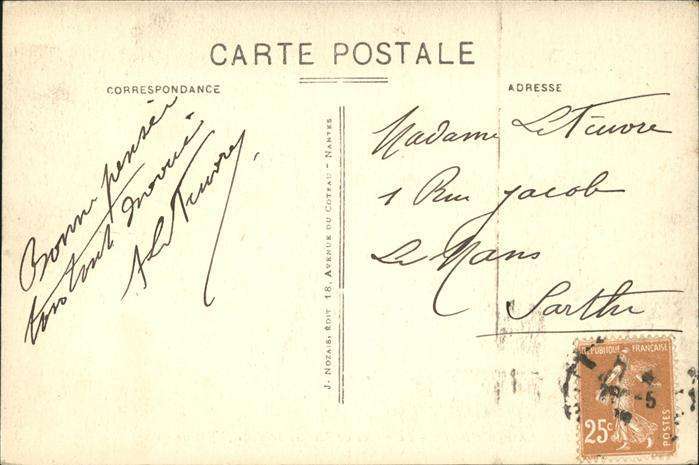 CARTE POSTALE
CORRESPONDANCE
Bonne pensée
ton tout dévoué
A Le Fieuvre
J. NOZAIS, ÉDIT 18, AVENUE DU COTEAU - NANTES
ADRESSE
Madame Le Fieuvre
1 Rue Jacob
Le Mans
Sarthe
RÉPUBLIQUE FRANÇAISE
-5
25c
POSTES